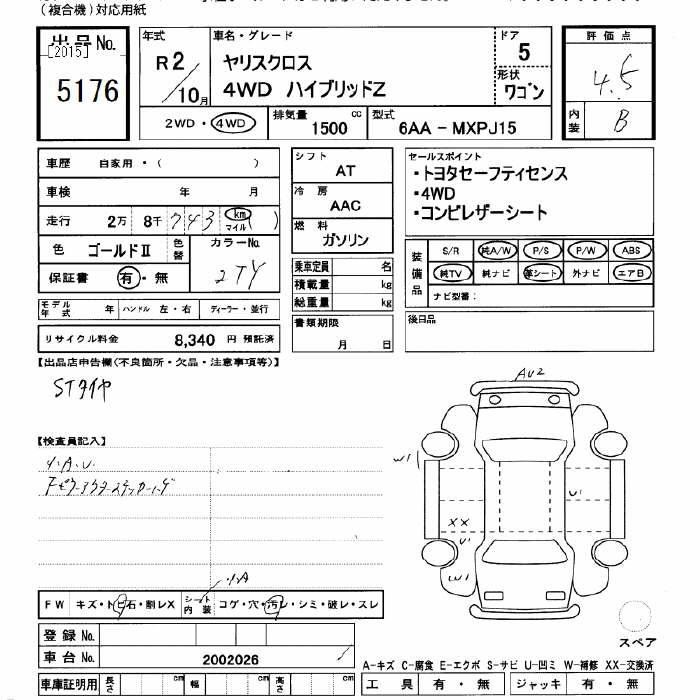 (複合機)対応用紙
出品No.
[2015]
5176
年式
R2/10月
車名・グレード
ヤリスクロス
4WD ハイブリッドZ
ドア
5
形状
ワゴン
評価点
4.5
内装
B
2WD・4WD
排気量
1500 cc
型式
6AA-MXPJ15
車歴 自家用・( )
車検 年 月
走行 2万 8千 743 km マイル ( )
色 ゴールドⅡ 色替
カラーNo.
2TY
保証書 有・無
モデル年式 年 ハンドル 左・右 ディーラー・並行
リサイクル料金 8,340 円 預託済
シフト
AT
冷房
AAC
燃料
ガソリン
乗車定員 名
積載量 kg
総重量 kg
書類期限
月 日
セールスポイント
・トヨタセーフティセンス
・4WD
・コンビレザーシート
装備品
S/R 純A/W P/S P/W ABS
純TV 純ナビ 革シート 外ナビ エアB
ナビ型番:
後日品
【出品店申告欄(不良箇所・欠品・注意事項等)】
STタイヤ
【検査員記入】
小A.U.
AU2
W1
U1
XX
U1
W1
小A
FW キズ・トビ石・割レX シート内装 コゲ・穴・汚レ・シミ・破レ・スレ
登録No.
車台No. 2002026
車庫証明用 長さ cm 幅 cm 高さ cm
スペア
A-キズ C-腐食 E-エクボ S-サビ U-凹ミ W-補修 XX-交換済
工具 有・無 ジャッキ 有・無